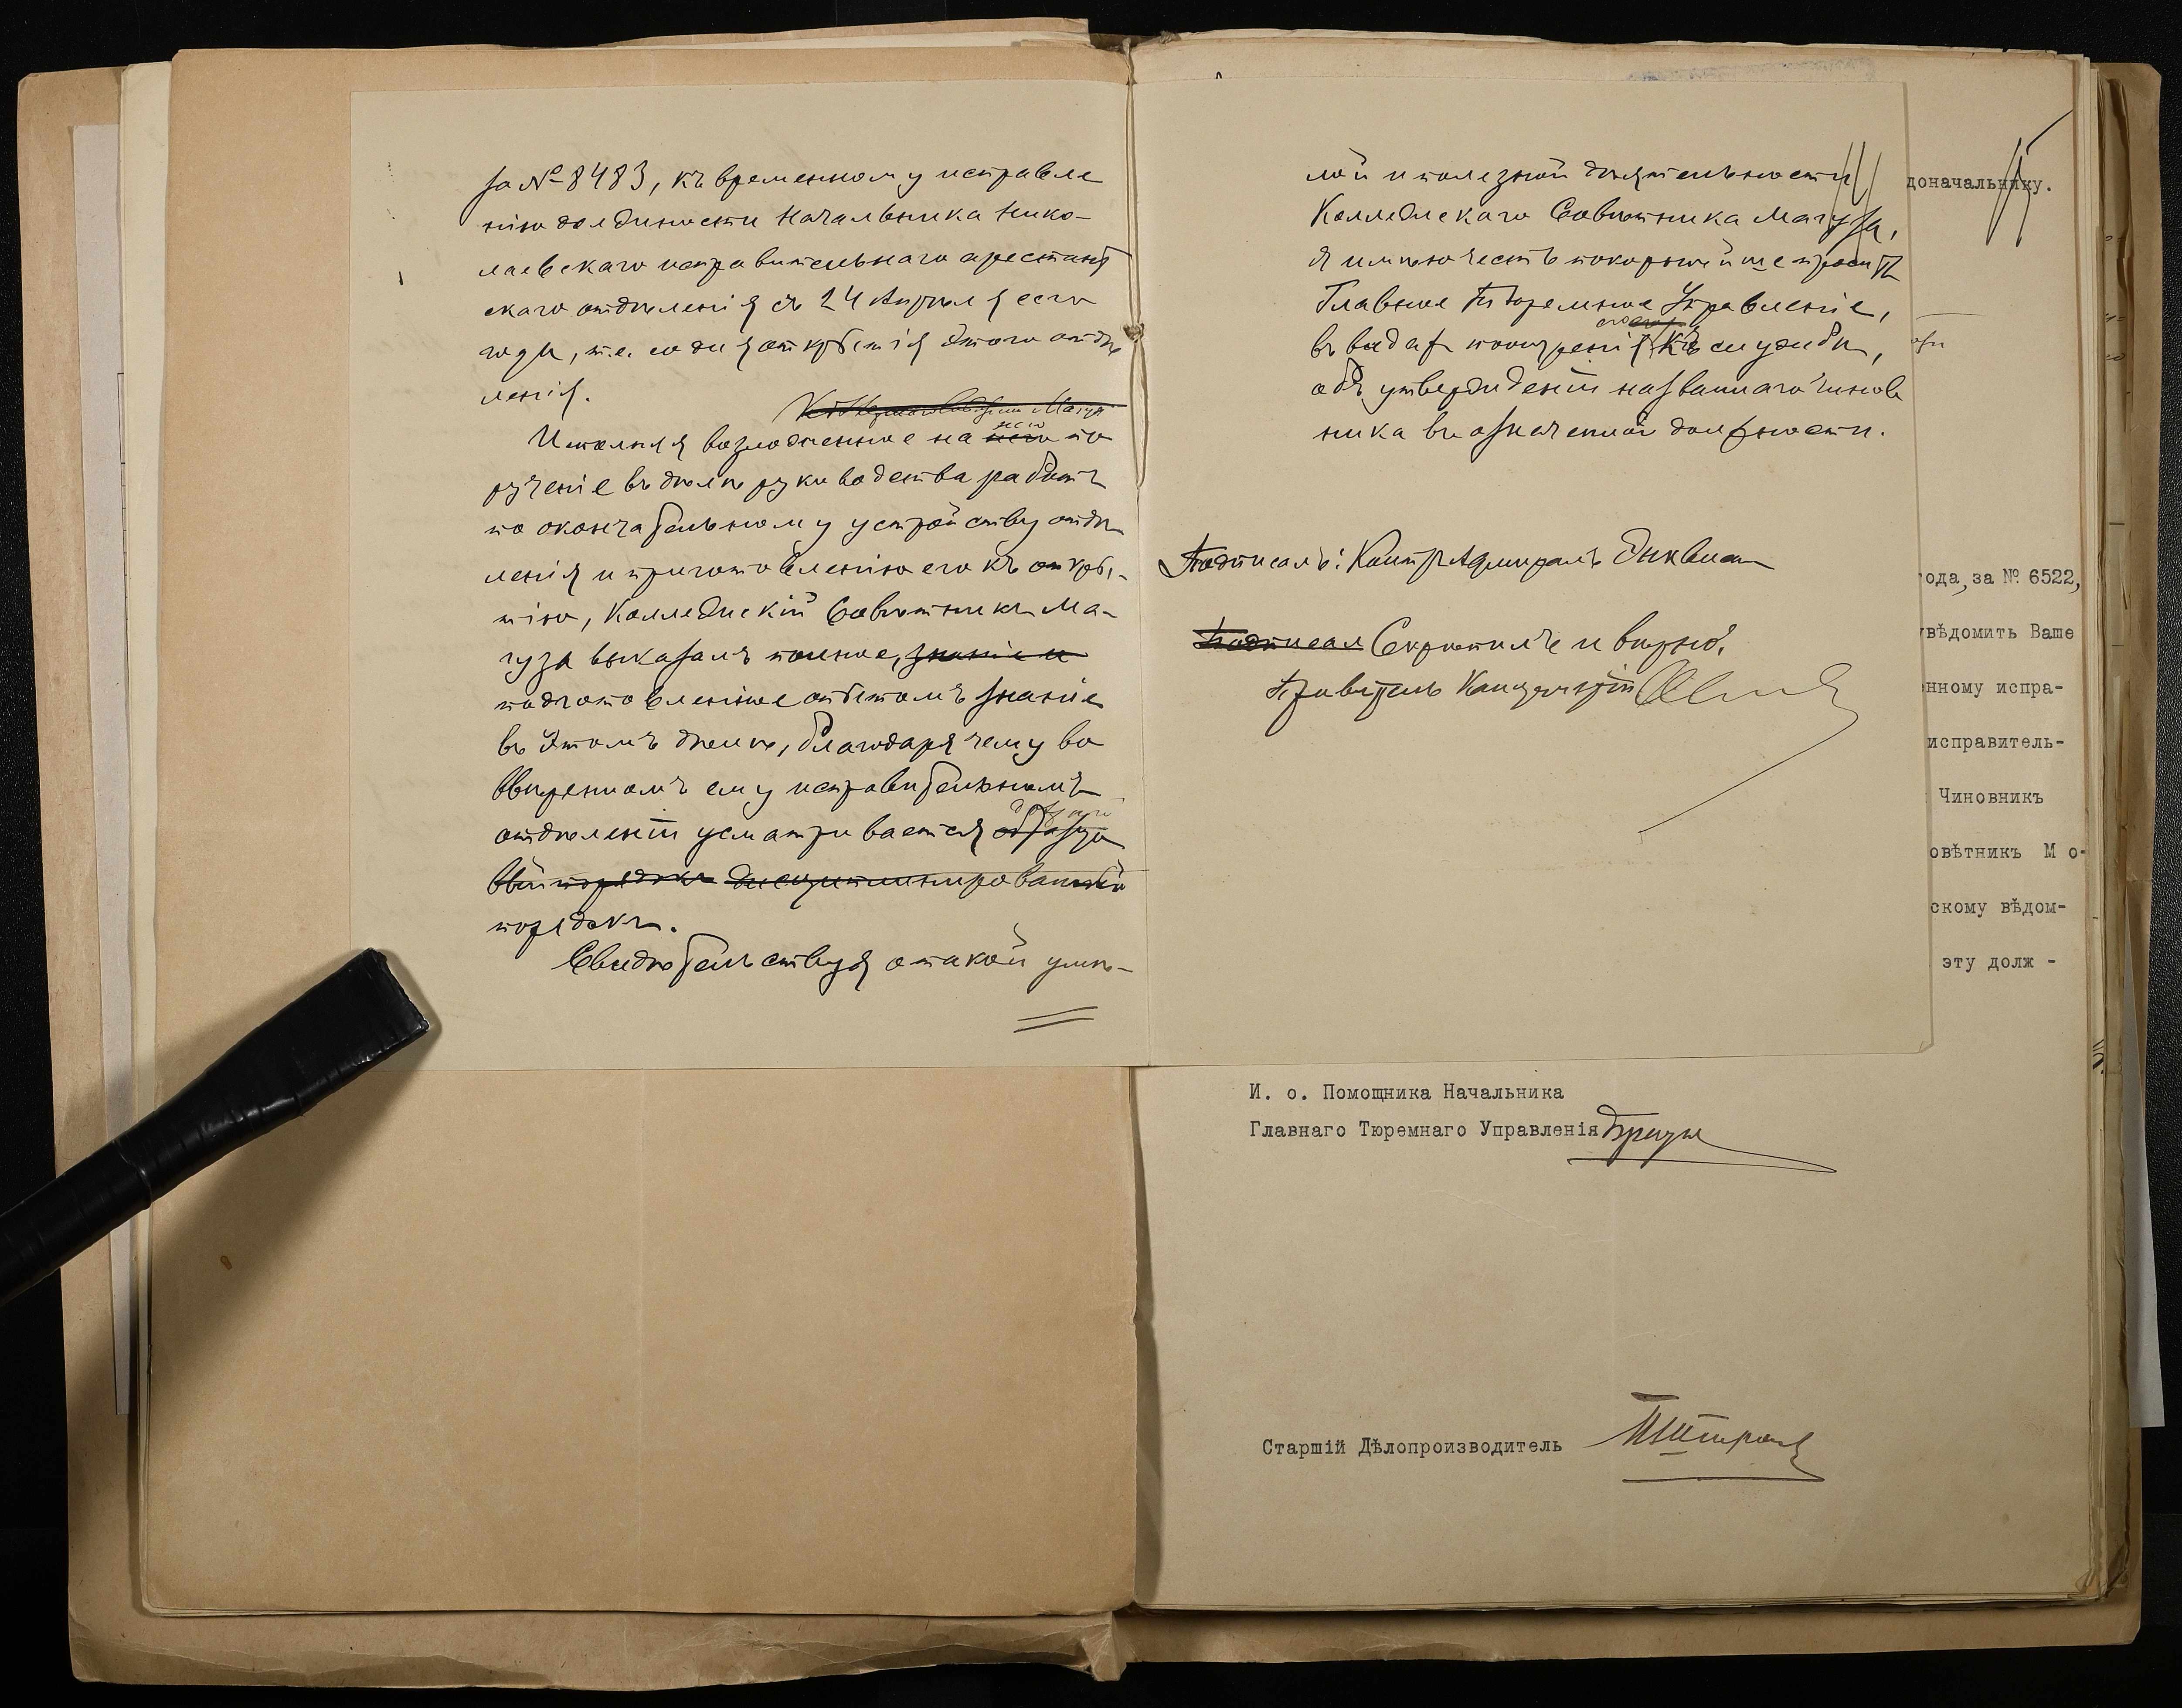 за № 8483, къ временному исправле
нію должности Начальника Нико-
лаевскаго исправительнаго арестант
скаго отдѣленія съ 24 Апрѣля сего
года, т.е. со дня открытія этого отдѣ
ленія.
Исполняя возложенное на него по
рученіе въ дѣлѣ руководства работъ
по окончательному устройству отдѣ
ленія и приготовленію его къ откры-
тію, Коллежскій Совѣтникъ Ма-
гуза выказалъ полное, знаніе и
подготовленное опытомъ знаніе
въ этомъ дѣлѣ, благодаря чему во
ввѣренномъ ему исправительномъ
отдѣленіи усматривается образцо
вый порядокъ дисциплинированный
порядокъ.
Свидѣтельствуя о такой умѣ-
лой и полезной дѣятельности
Коллежскаго Совѣтника Магуза,
я имѣю честь покорнѣйше просить
Главное Тюремное Управленіе,
въ видахъ поощренія его къ службѣ,
объ утвержденіи названнаго чинов
ника въ означенной должности.
Подписалъ: Контръ Адмиралъ Энквистъ
Подписал Скрѣпилъ и вѣрно:
Правитель Канцеляріи
14
15
доначальнику.
года, за № 6522,
увѣдомить Ваше
нному испра-
исправитель-
Чиновникъ
овѣтникъ М о-
скому вѣдом-
эту долж -
И. о. Помощника Начальника
Главнаго Тюремнаго Управленія
Старшій Дѣлопроизводитель